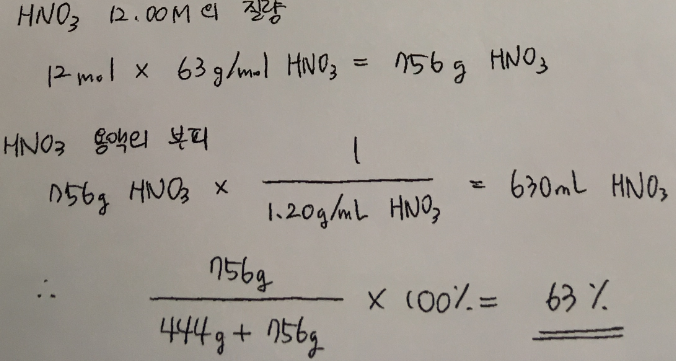 HNO₃ 12.00M의 질량
12mol × 63g/mol HNO₃ = 756g HNO₃
HNO₃ 용액의 부피
756g HNO₃ × 1 / 1.20g/mL HNO₃ = 630mL HNO₃
∴ 756g / 444g + 756g × 100% = 63%